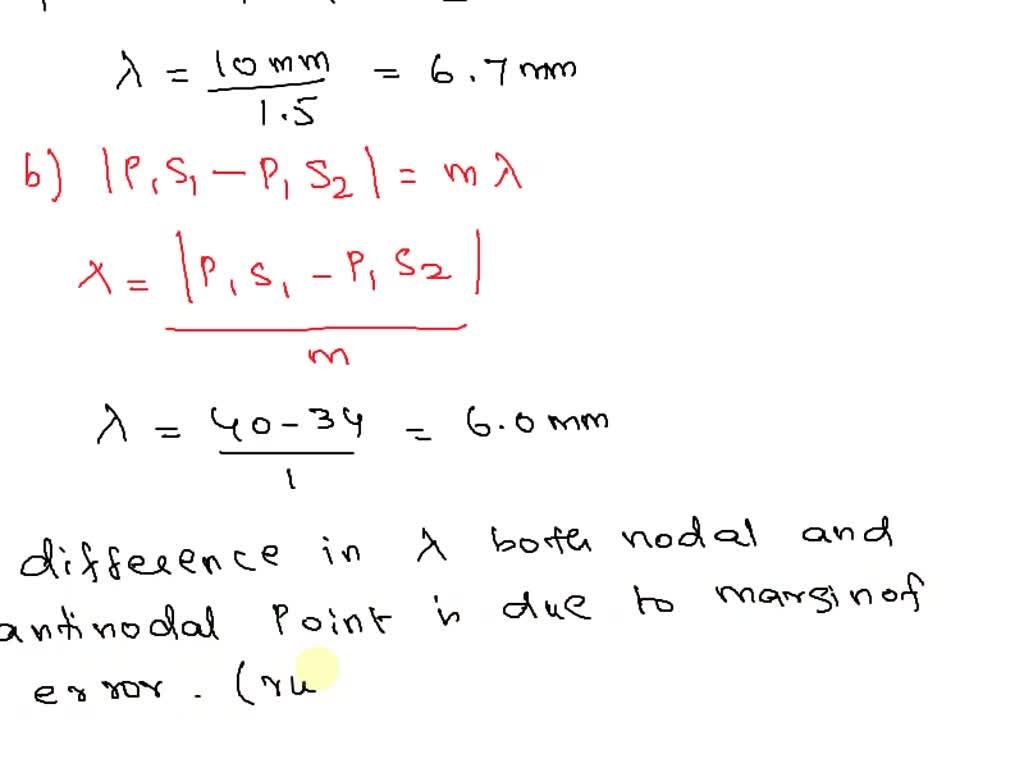 λ = 10 mm / 1.5 = 6.7 mm
b) |P₁S₁ - P₁S₂| = mλ
λ = |P₁S₁ - P₁S₂| / m
λ = 40 - 34 / 1 = 6.0 mm
difference in λ both nodal and
antinodal Point is due to margin of
error. (ru